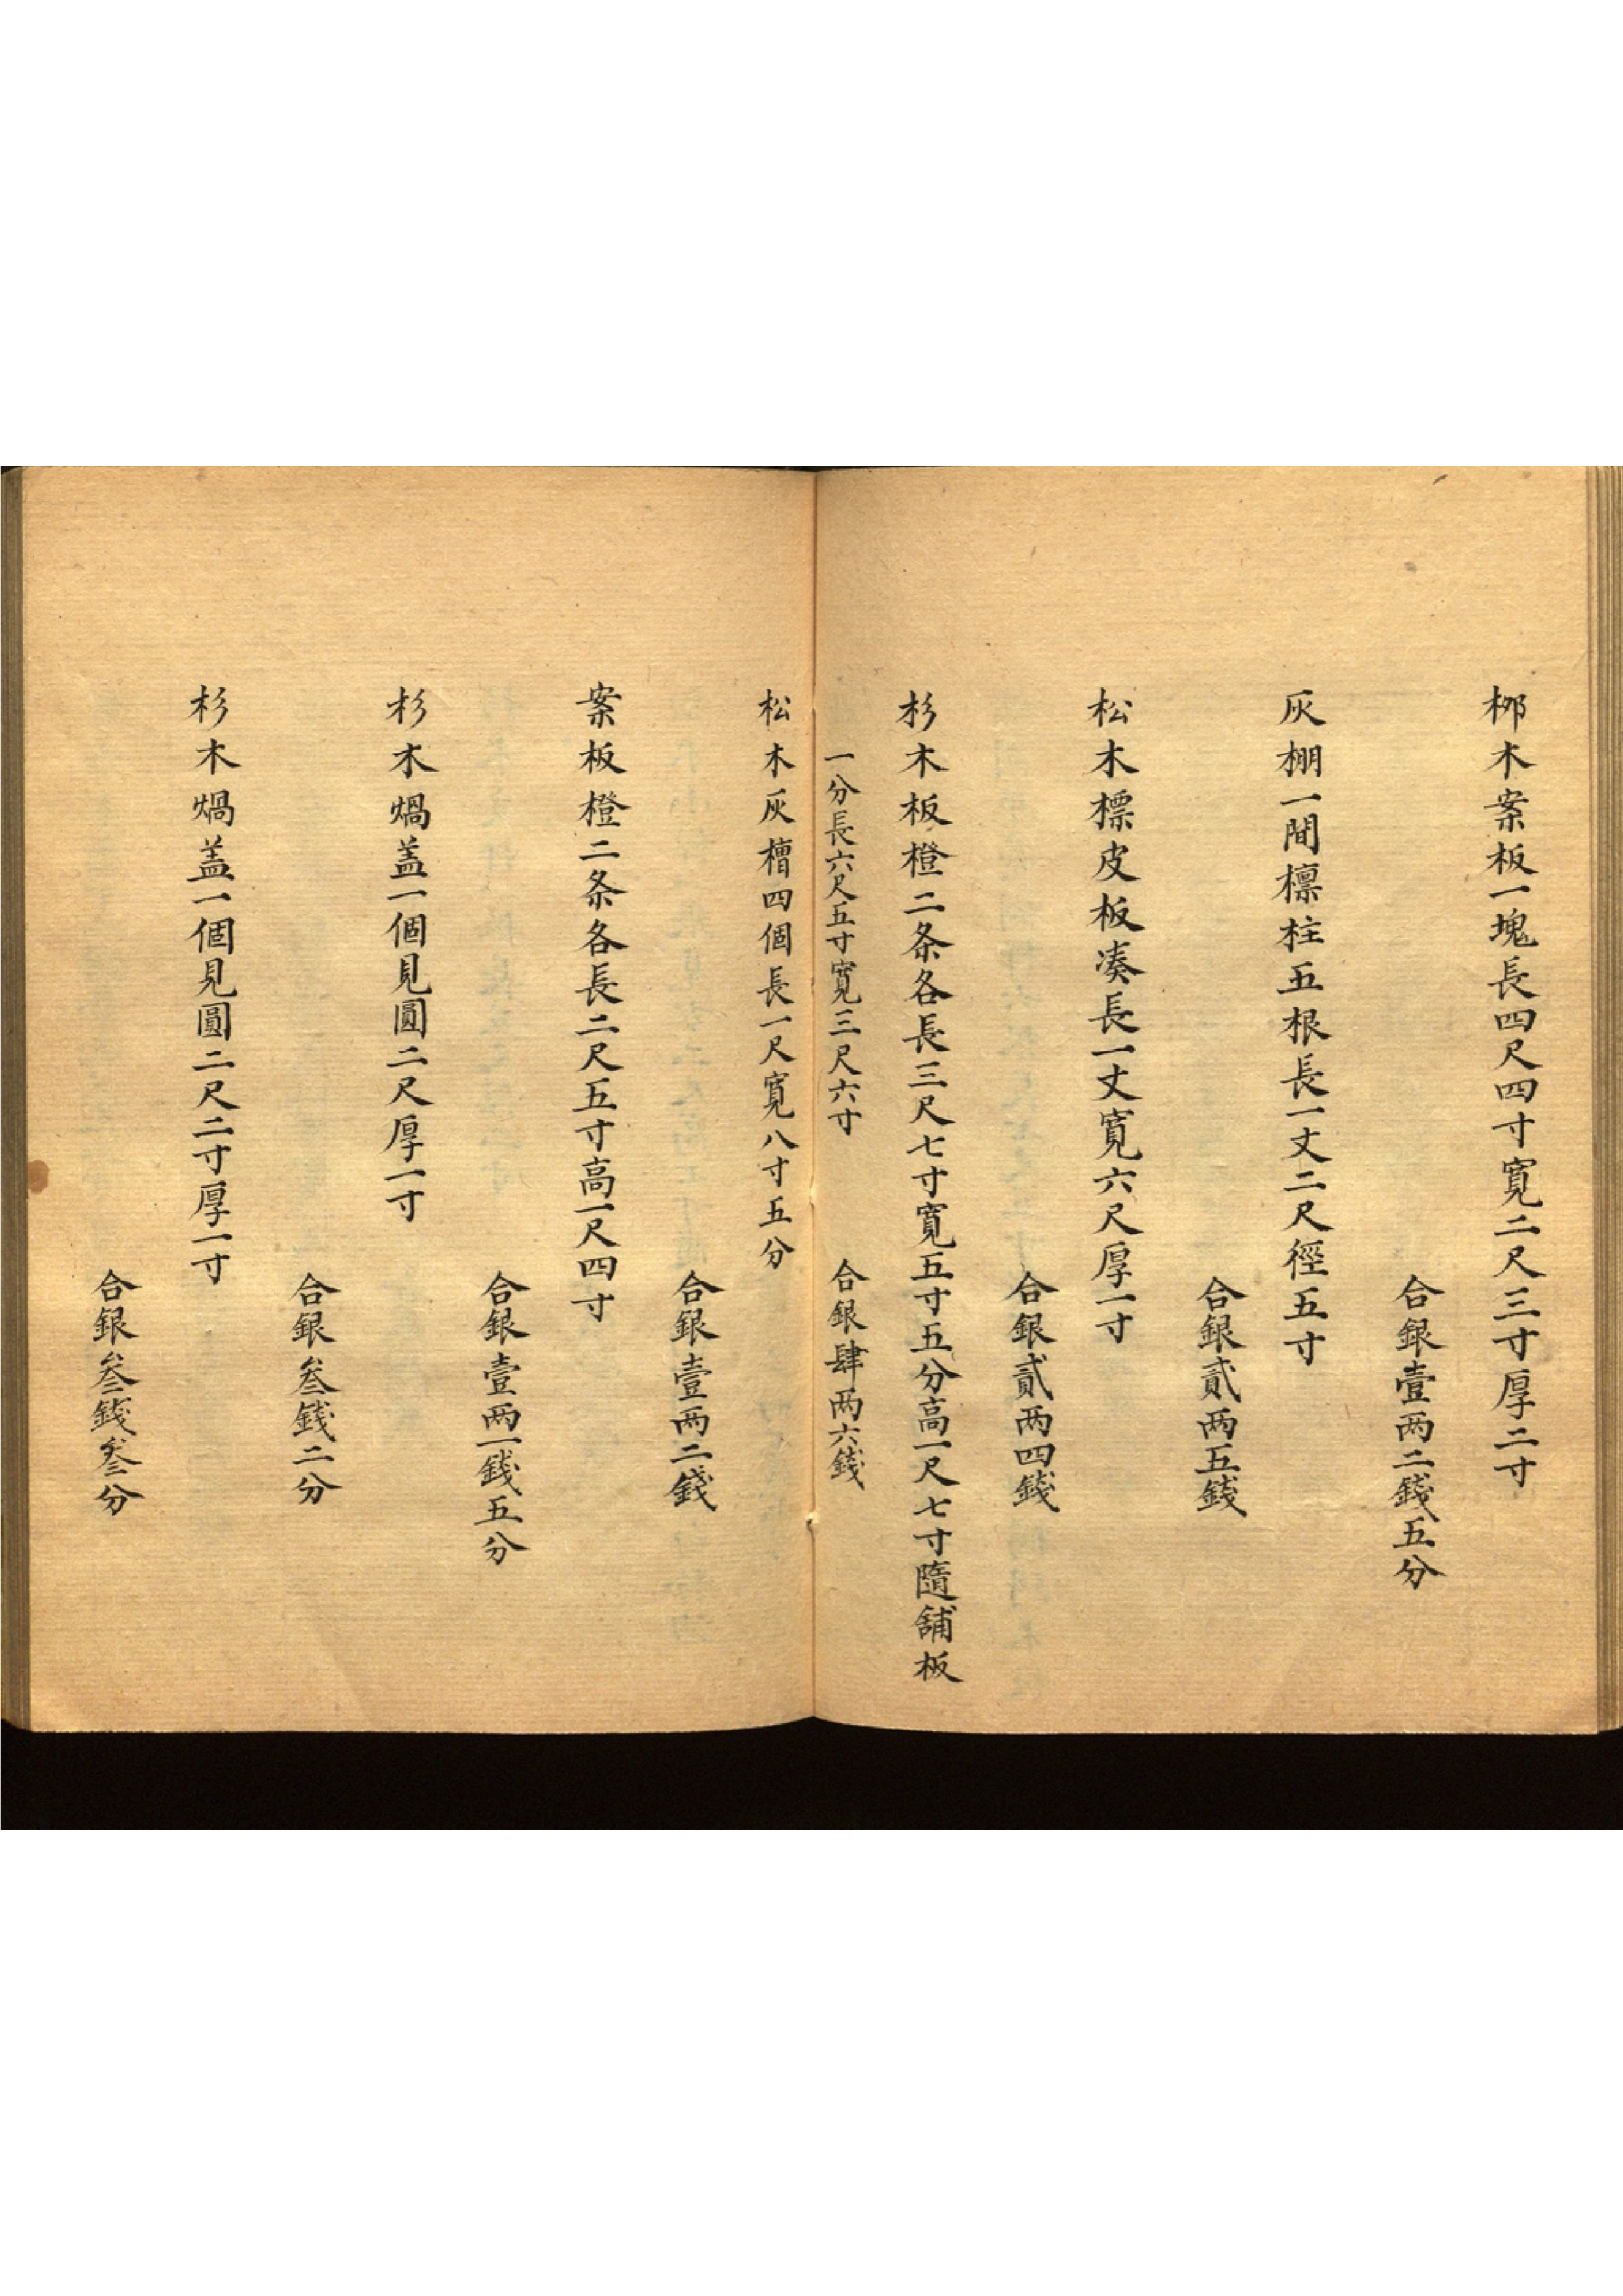 柳木案板一塊長四尺四寸寬二尺三寸厚二寸
合銀壹两二錢五分
灰棚一間檁柱五根長一丈二尺徑五寸
合銀貳两五錢
松木標皮板凑長一丈寬六尺厚一寸
合銀貳两四錢
杉木板橙二条各長三尺七寸寬五寸五分高一尺七寸隨舖板
一分長六尺五寸寬三尺六寸 合銀肆两六錢
松木灰槽四個長一尺寬八寸五分
合銀壹两二錢
案板橙二条各長二尺五寸高一尺四寸
合銀壹两一錢五分
杉木煱盖一個見圓二尺厚一寸
合銀叁錢二分
杉木煱盖一個見圓二尺二寸厚一寸
合銀叁錢叁分